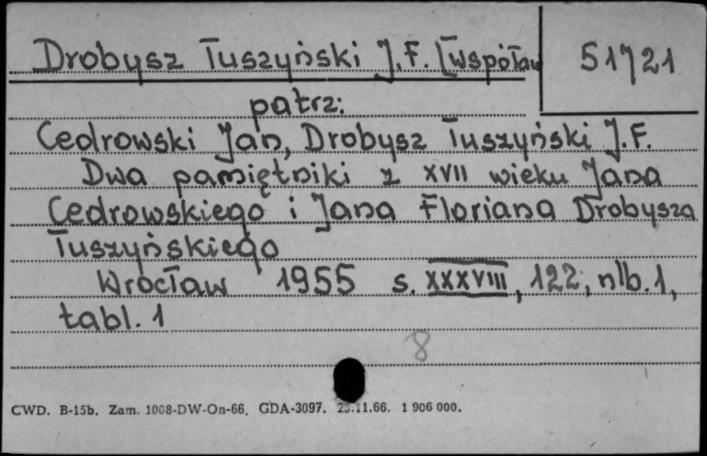 Drobysz Tuszyński J.F. [współaw
51721
patrz:
Cedrowski Jan, Drobysz Tuszyński J.F.
Dwa pamiętniki z XVII wieku Jana
Cedrowskiego i Jana Floriana Drobysza
Tuszyńskiego
Wrocław 1955 s. XXXVIII, 122, nlb. 1,
tabl. 1
8
CWD. B-15b. Zam. 1008-DW-On-66. GDA-3097. 23.11.66. 1 906 000.